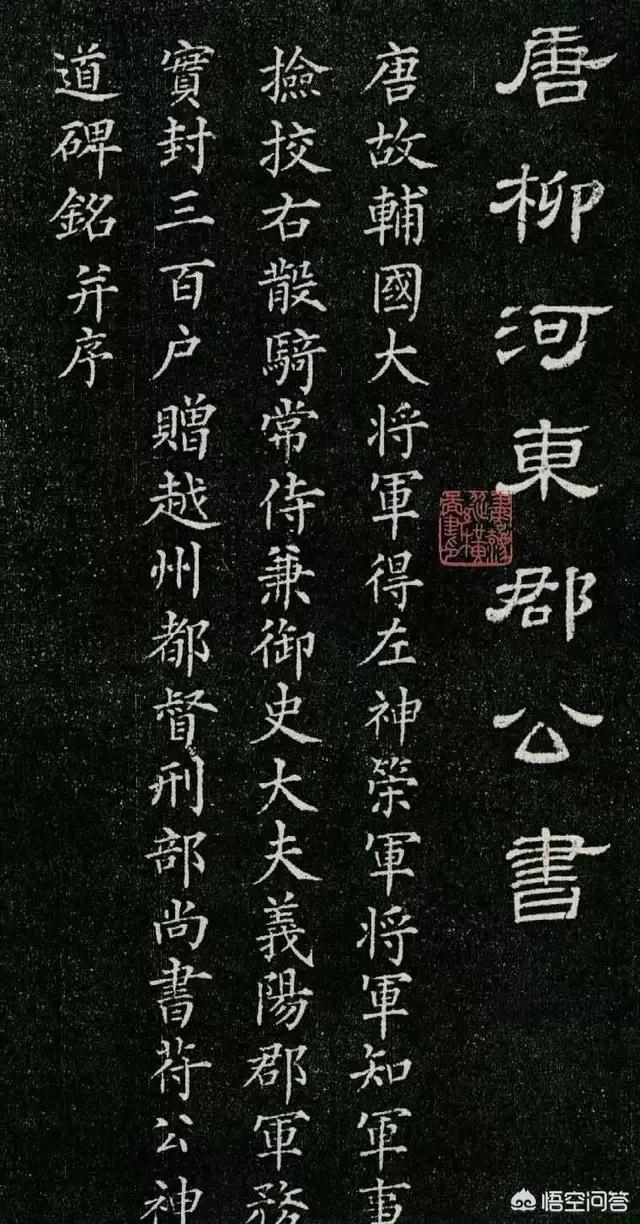 唐柳河東郡公書
唐故輔國大将軍得左神策軍将軍知軍事
撿挍右散騎常侍兼御史大夫義陽郡軍務
實封三百户贈越州都督刑部尚書苻公神
道碑銘并序
悟空问答